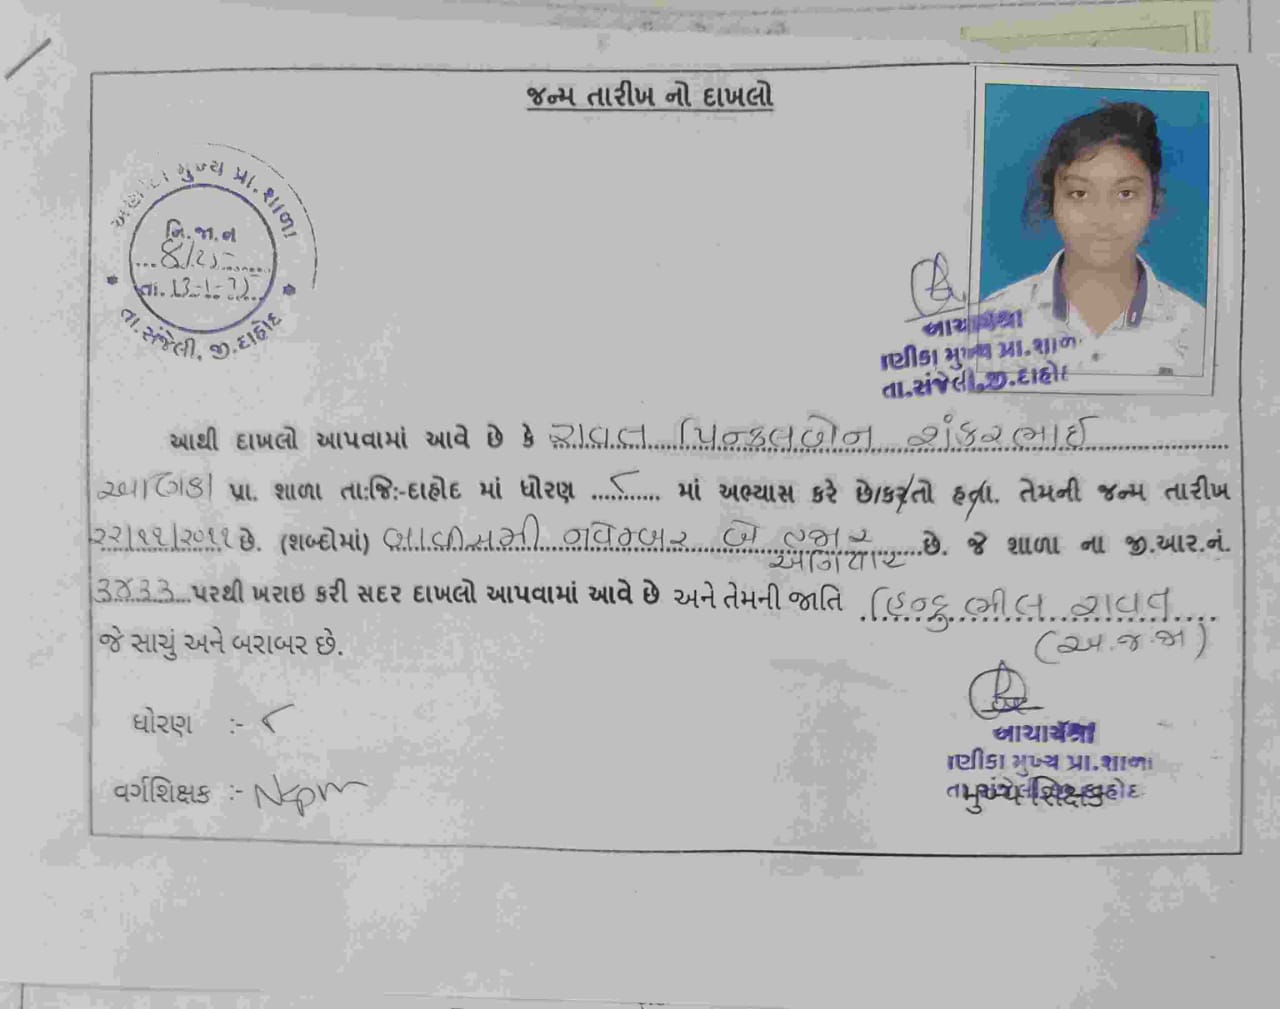 જન્મ તારીખ નો દાખલો
મુખ્ય પ્રા. શાળા
નિ. જા. ન
તા. 13-1-25
તા. સંજેલી, જી. દાહોદ
આચાર્યશ્રી
ણીકા મુખ્ય પ્રા. શાળ
તા. સંજેલી, જી. દાહોદ
આથી દાખલો આપવામાં આવે છે કે રાવત પિન્કલબેન શંકરભાઈ
પ્રા. શાળા તા:જિ:-દાહોદ માં ધોરણ ૮ માં અભ્યાસ કરે છે/કરતો હતા. તેમની જન્મ તારીખ
૨૨/૧૧/૨૦૧૧ છે. (શબ્દોમાં) બાવીસમી નવેમ્બર બે હજાર અગિયાર છે. જે શાળા ના જી.આર.નં.
૩૪૩૩ પરથી ખરાઇ કરી સદર દાખલો આપવામાં આવે છે અને તેમની જાતિ હિન્દુ ભીલ રાવત
(અ.જ.જા)
જે સાચું અને બરાબર છે.
ધોરણ :- ૮
વર્ગશિક્ષક :-
આચાર્યશ્રી
ણીકા મુખ્ય પ્રા. શાળા
મુખ્ય શિક્ષક